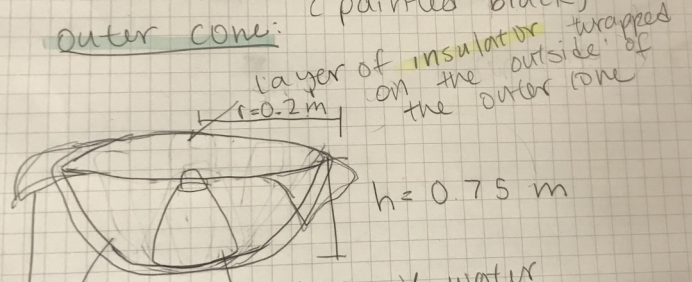 (painted black)
outer cone:
layer of insulator wrapped
on the outside of
the outer cone
r=0.2 m
h= 0.75 m
water